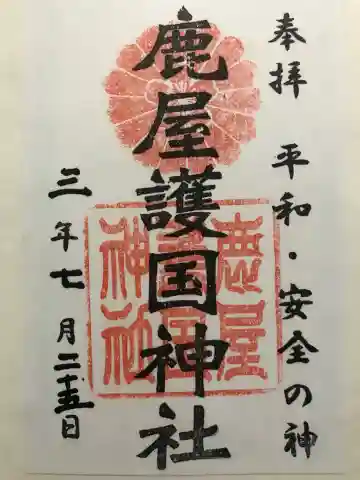 奉拝 平和・安全の神
鹿屋護国神社
三年七月二十五日
鹿屋護国神社